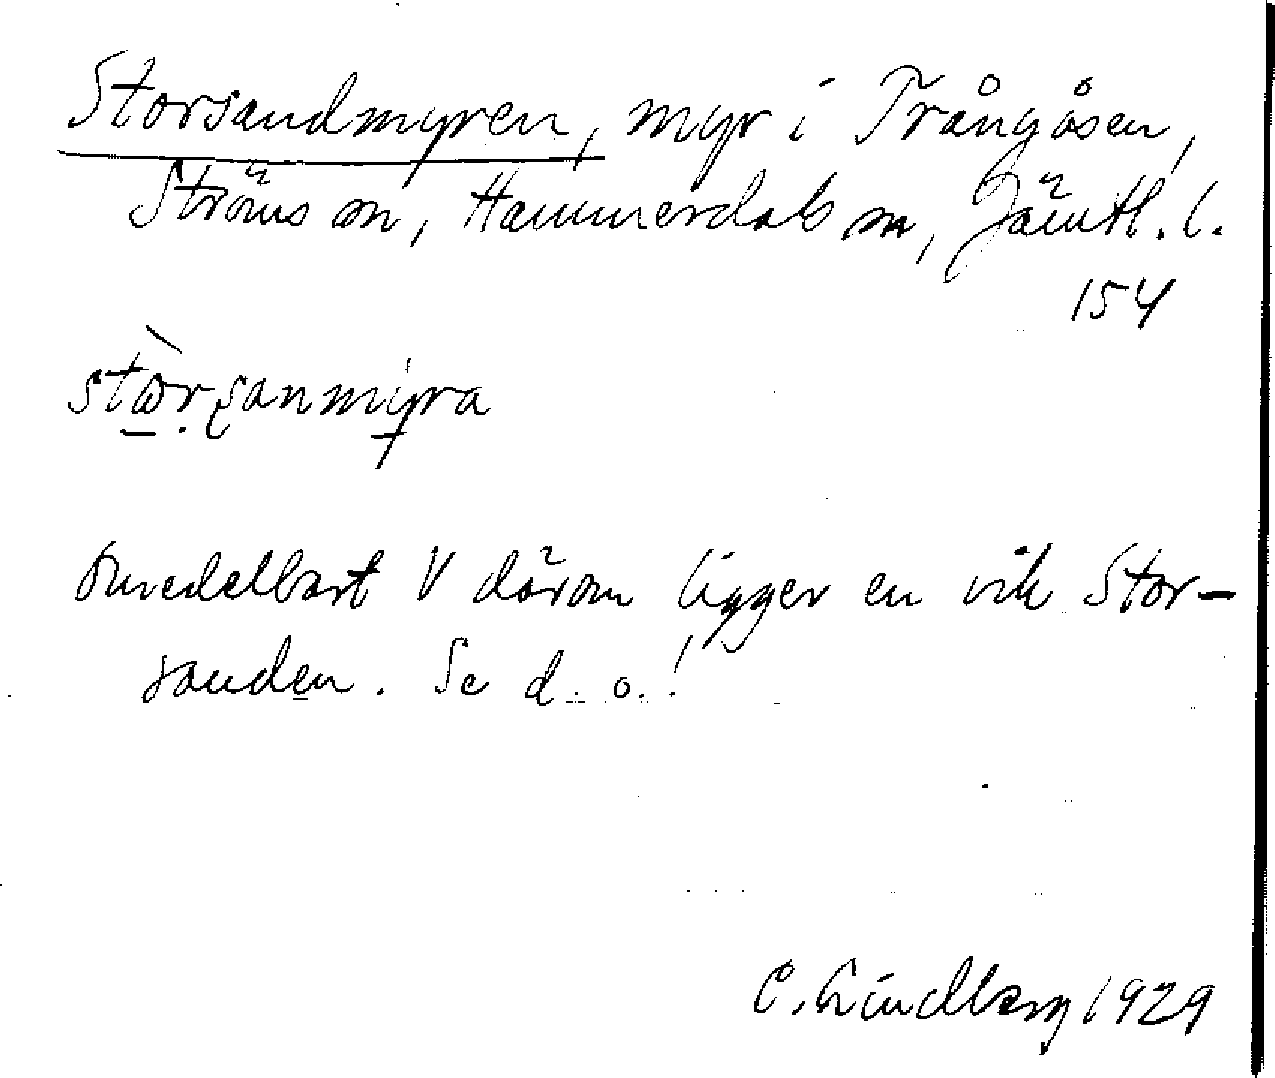 Storsandmyren, myr i Trångåsen,
Ströms sn, Hammerdals sn, Jämtl. l.
154
stò̱rṣanmýra
Omedelbart V därom ligger en vik Stor-
sanden. Se d. o.!
C. Lindberg 1929